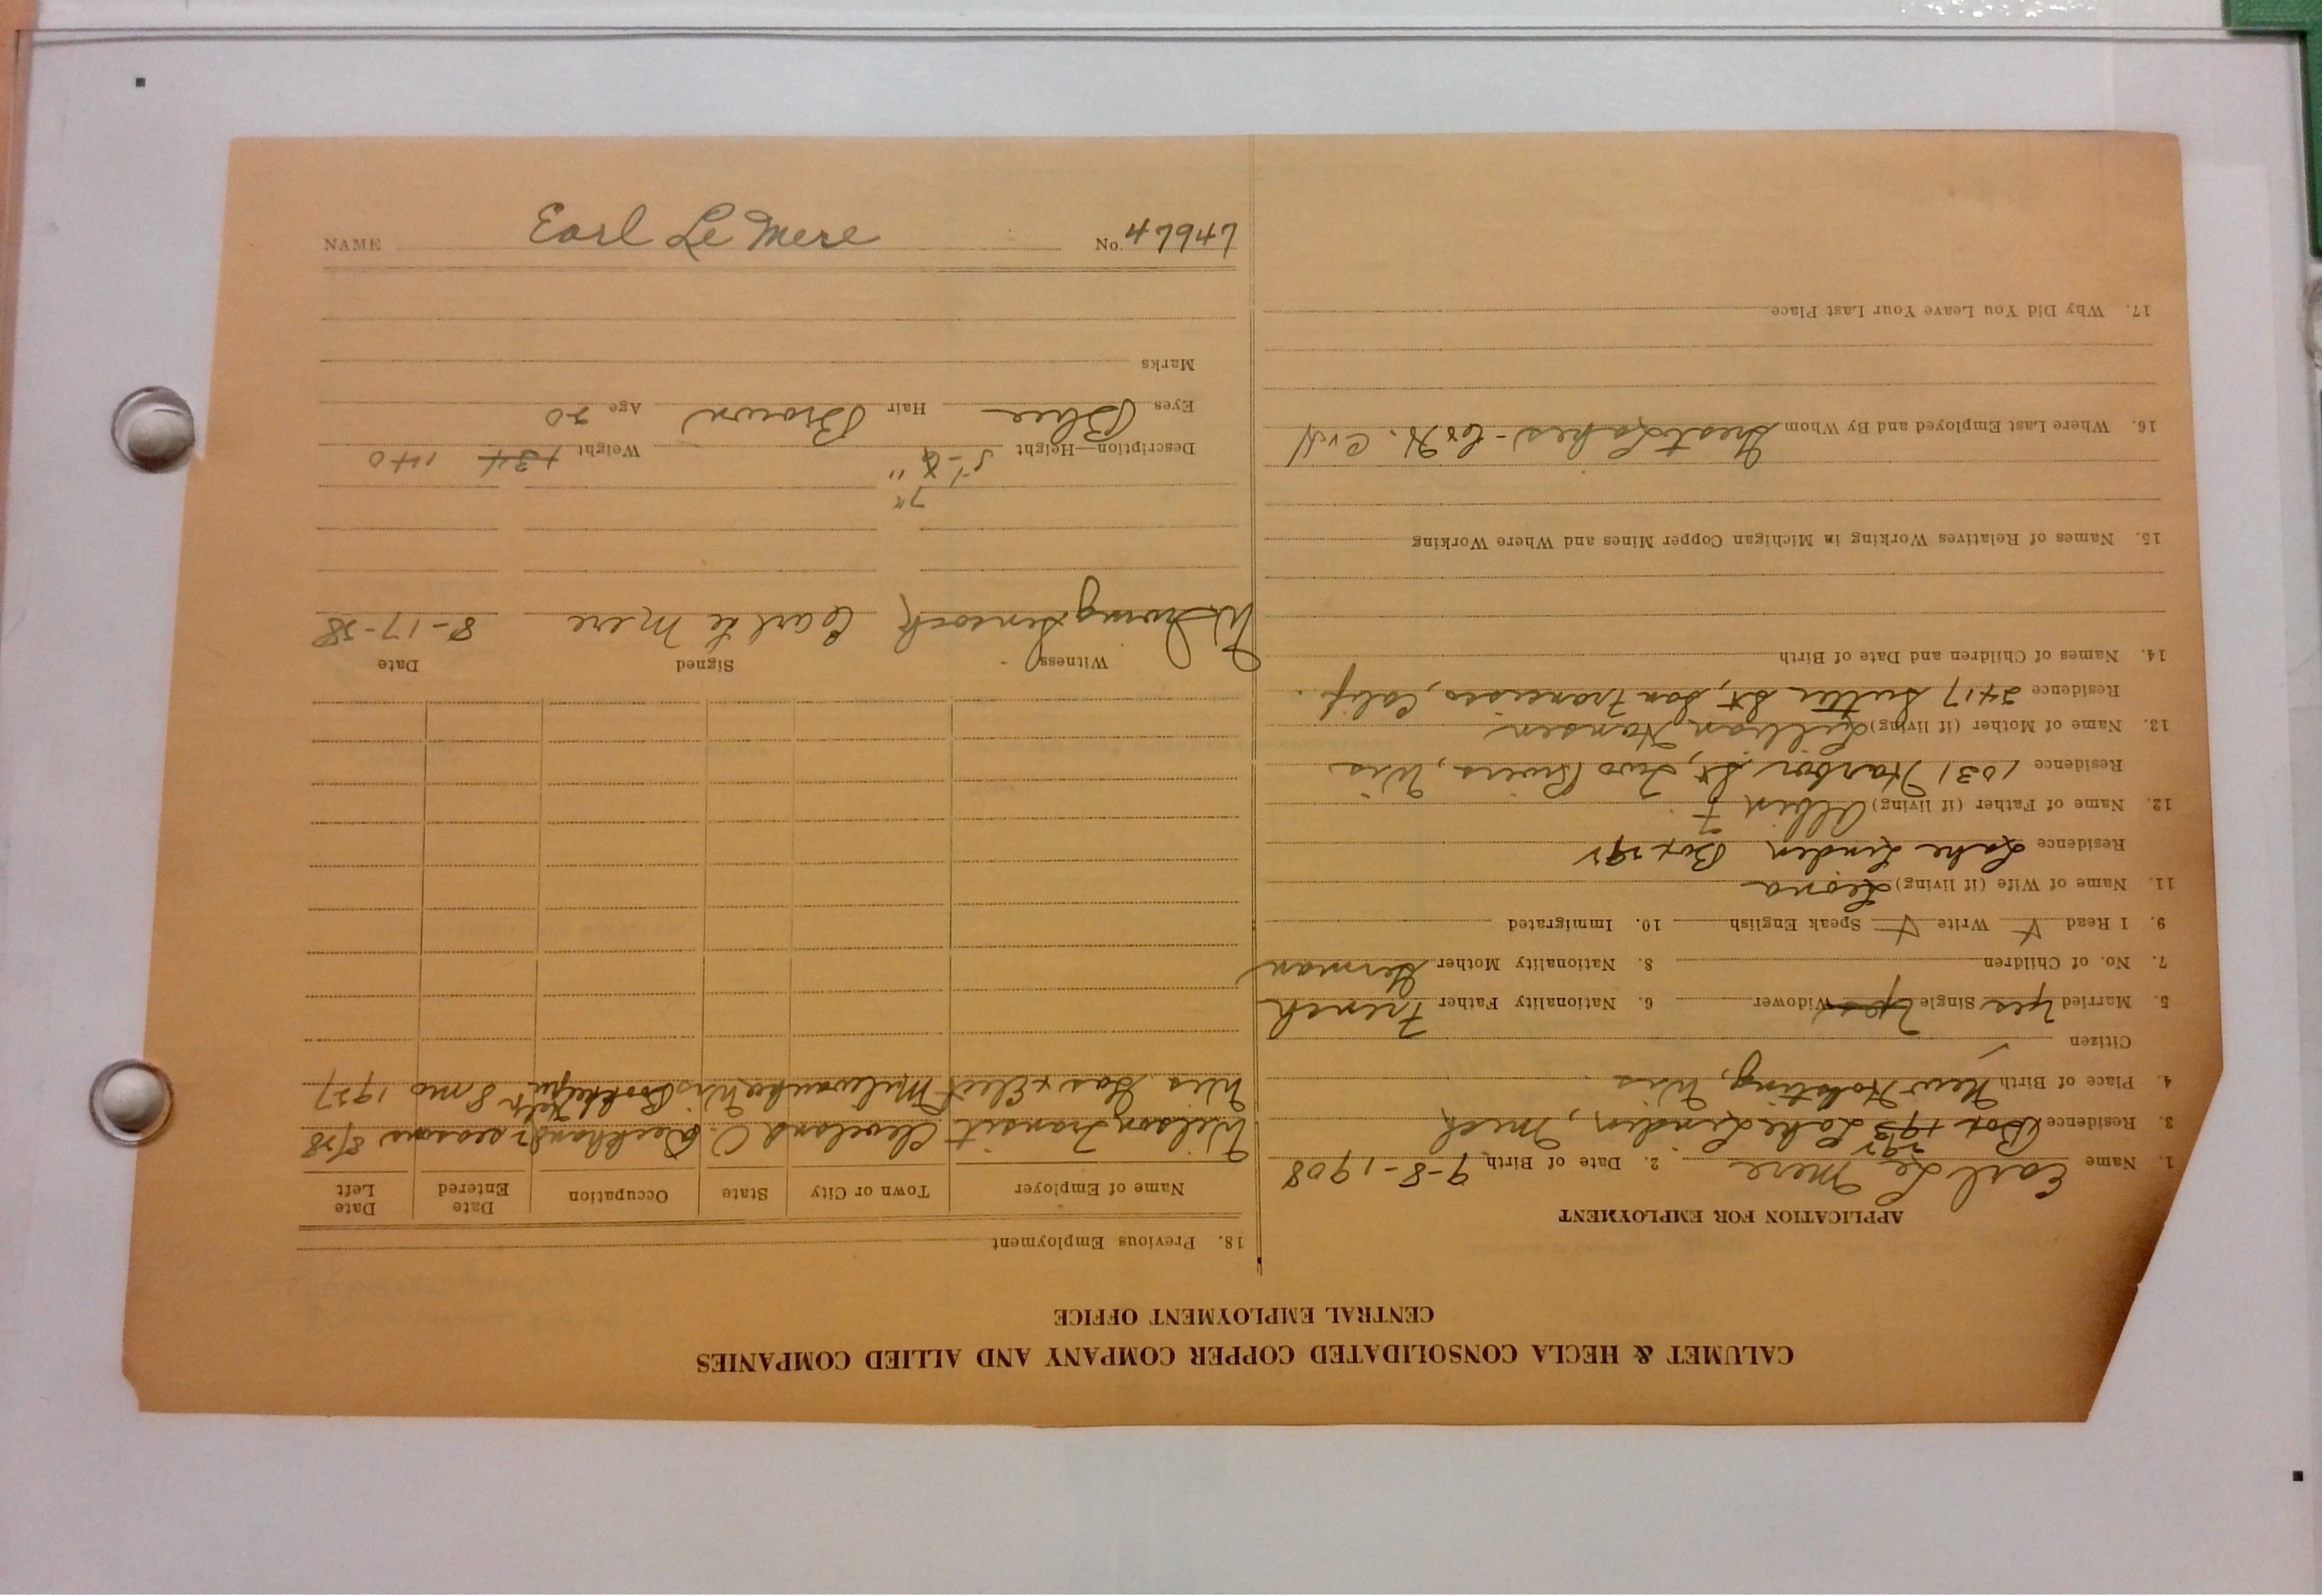 CALUMET & HECLA CONSOLIDATED COPPER COMPANY AND ALLIED COMPANIES
CENTRAL EMPLOYMENT OFFICE
APPLICATION FOR EMPLOYMENT
1. Name Earl Le Mere 2. Date of Birth 9-8-1908
3. Residence Box 193 292 Lake Linden, Mich
4. Place of Birth New Holsting, Wis.
Citizen ✓
5. Married yes Single yes Widower 6. Nationality Father French
7. No. of Children 8. Nationality Mother German
9. I Read Write Speak English 10. Immigrated
11. Name of Wife (if living) Leona
Residence Lake Linden Box 292
12. Name of Father (if living) Albin F
Residence 1031 Harbor St, Two Rivers, Wis
13. Name of Mother (if living) Lillian Hansen
Residence 2417 Sutter St, San Francisco, Calif.
14. Names of Children and Date of Birth
15. Names of Relatives Working in Michigan Copper Mines and Where Working
16. Where Last Employed and By Whom Great Lakes -
17. Why Did You Leave Your Last Place
18. Previous Employment
Name of Employer Town or City State Occupation Date Entered Date Left
Wilson Transit Cleveland O. Deckhand 2 seasons 8/28
Wis Gas & Elect Milwaukee Wis Bookkeeper 8 mo 1927
Witness Signed Date
Earl Le Mere 8-17-28
7"
Description—Height 5'-6" Weight 134 140
Eyes Blue Hair Brown Age 20
Marks
NAME Earl Le Mere No. 47947